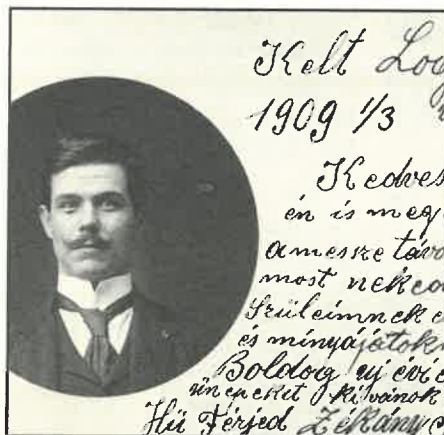 Kelt Log
1909 1/3
Kedves
én is meg
a messze távo
most neked
Szüleimnek e
és minyájatokn
Boldog uj évi e
ünepeket kivánok
Hü Férjed Zékány